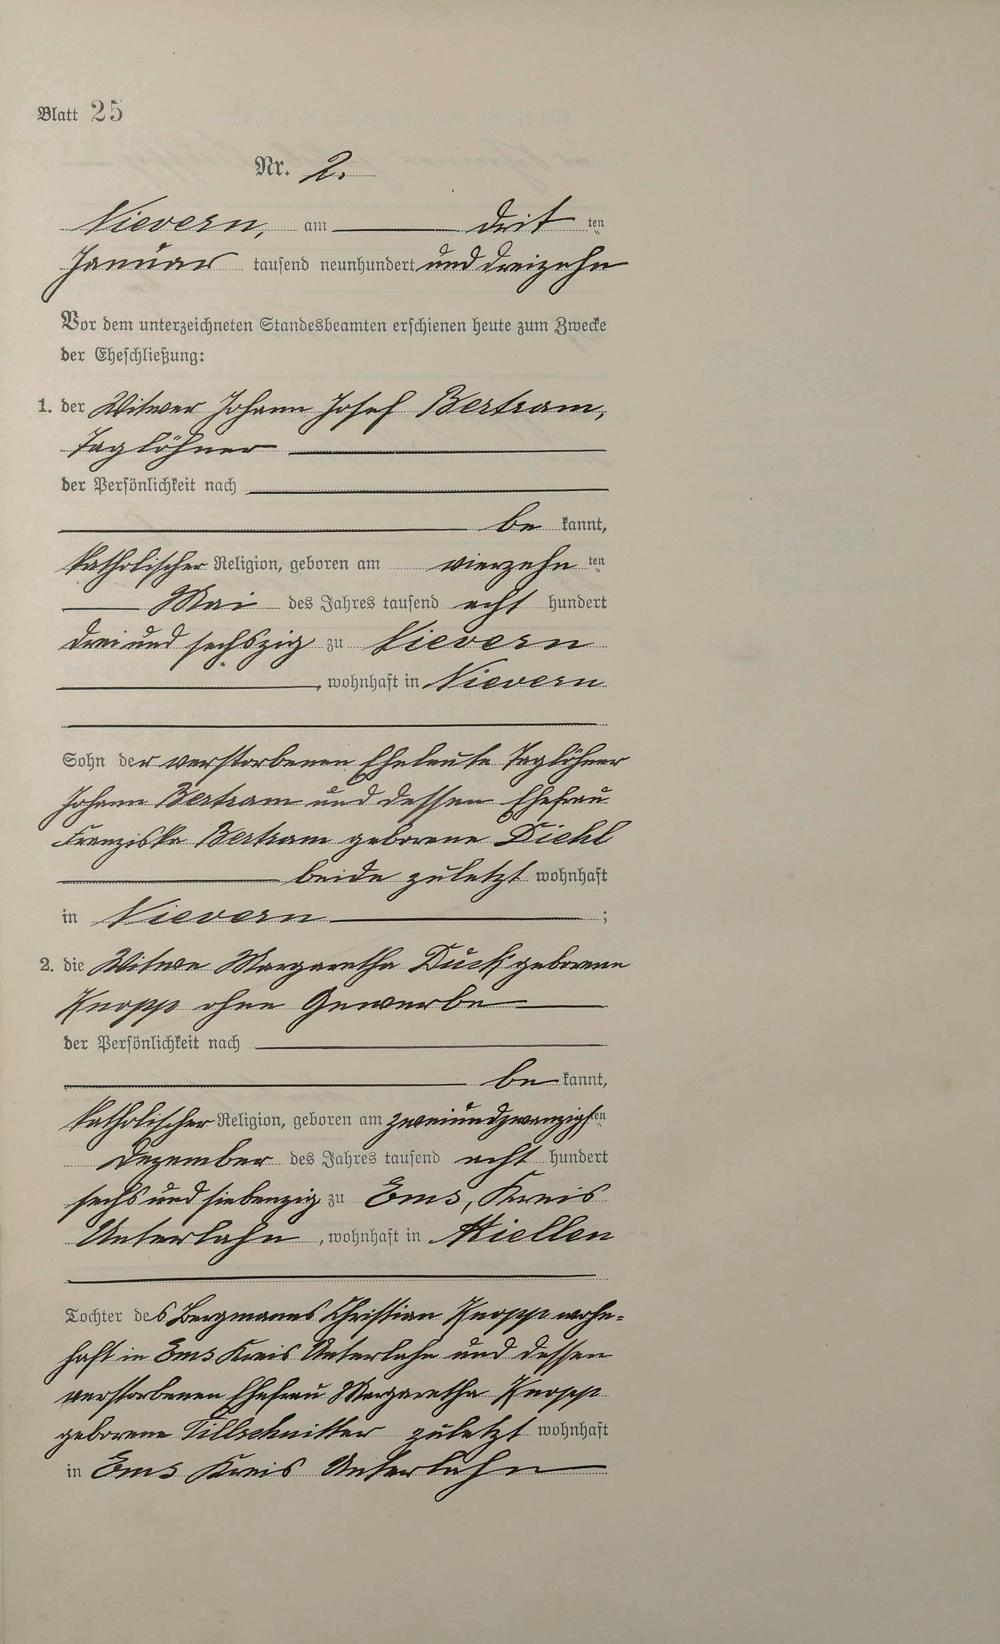 Blatt 25
Nr. 2.
Nievern, am drit ten
Januar tausend neunhundert und dreizehn
Vor dem unterzeichneten Standesbeamten erschienen heute zum Zwecke
der Eheschließung:
1. der Witwer Johann Josef Bertram,
Taglöhner
der Persönlichkeit nach
be kannt,
katholischer Religion, geboren am vierzehn ten
Mai des Jahres tausend acht hundert
drei und sechszig zu Nievern
, wohnhaft in Nievern
Sohn der verstorbenen Eheleute Taglöhner
Johann Bertram und dessen Ehefrau
Franziska Bertram geborene Diehl
beide zuletzt wohnhaft
in Nievern ;
2. die Witwe Margaretha Duck geborene
Knopp ohne Gewerbe
der Persönlichkeit nach
be kannt,
katholischer Religion, geboren am zweiundzwanzigsten
Dezember des Jahres tausend acht hundert
sechs und siebenzig zu Ems, Kreis
Unterlahn , wohnhaft in Miellen
Tochter des Bergmanns Christian Knopp wohn-
haft in Ems Kreis Unterlahn und dessen
verstorbenen Ehefrau Margaretha Knopp
geborene Tillschnitter zuletzt wohnhaft
in Ems Kreis Unterlahn